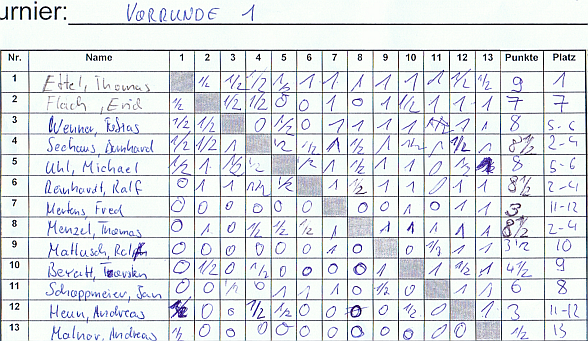 urnier: VORRUNDE 1
Nr. Name 1 2 3 4 5 6 7 8 9 10 11 12 13 Punkte Platz
1 Ettel, Thomas ½ ½ ½ ½ 1 1 1 1 1 1 ½ ½ 9 1
2 Flach, ½ ½ ½ 0 0 1 0 1 ½ 1 1 1 7 7
3 Wenner, Tobias ½ ½ 0 ½ 0 1 1 1 1 1 1 8 5-6
4 Seehaus, Bernhard ½ ½ 1 ½ ½ 1 ½ 1 ½ 1 ½ 1 8½ 2-4
5 Uhl, Michael ½ 1 ½ ½ ½ 1 ½ 1 1 0 ½ 8 5-6
6 Reinhardt, Ralf 0 1 1 ½ ½ 1 ½ 1 1 0 1 1 8½ 2-4
7 Mertens Fred 0 0 0 0 0 0 0 1 0 1 1 3 11-12
8 Menzel, Thomas 0 1 0 ½ ½ ½ 1 1 1 1 1 1 8½ 2-4
9 Mattusch, Ralf 0 0 0 0 0 0 0 0 ½ 1 1 3½ 10
10 0 ½ 0 ½ 0 0 0 0 1 1 ½ 1 4½ 9
11 Schoppmeier, Jan 0 0 0 1 1 1 0 ½ 0 1 1 6 8
12 Heun, Andreas ½ 0 0 ½ ½ 0 0 0 0 ½ 0 1 3 11-12
13 Andreas ½ 0 0 0 0 0 0 0 0 0 0 0 ½ 13